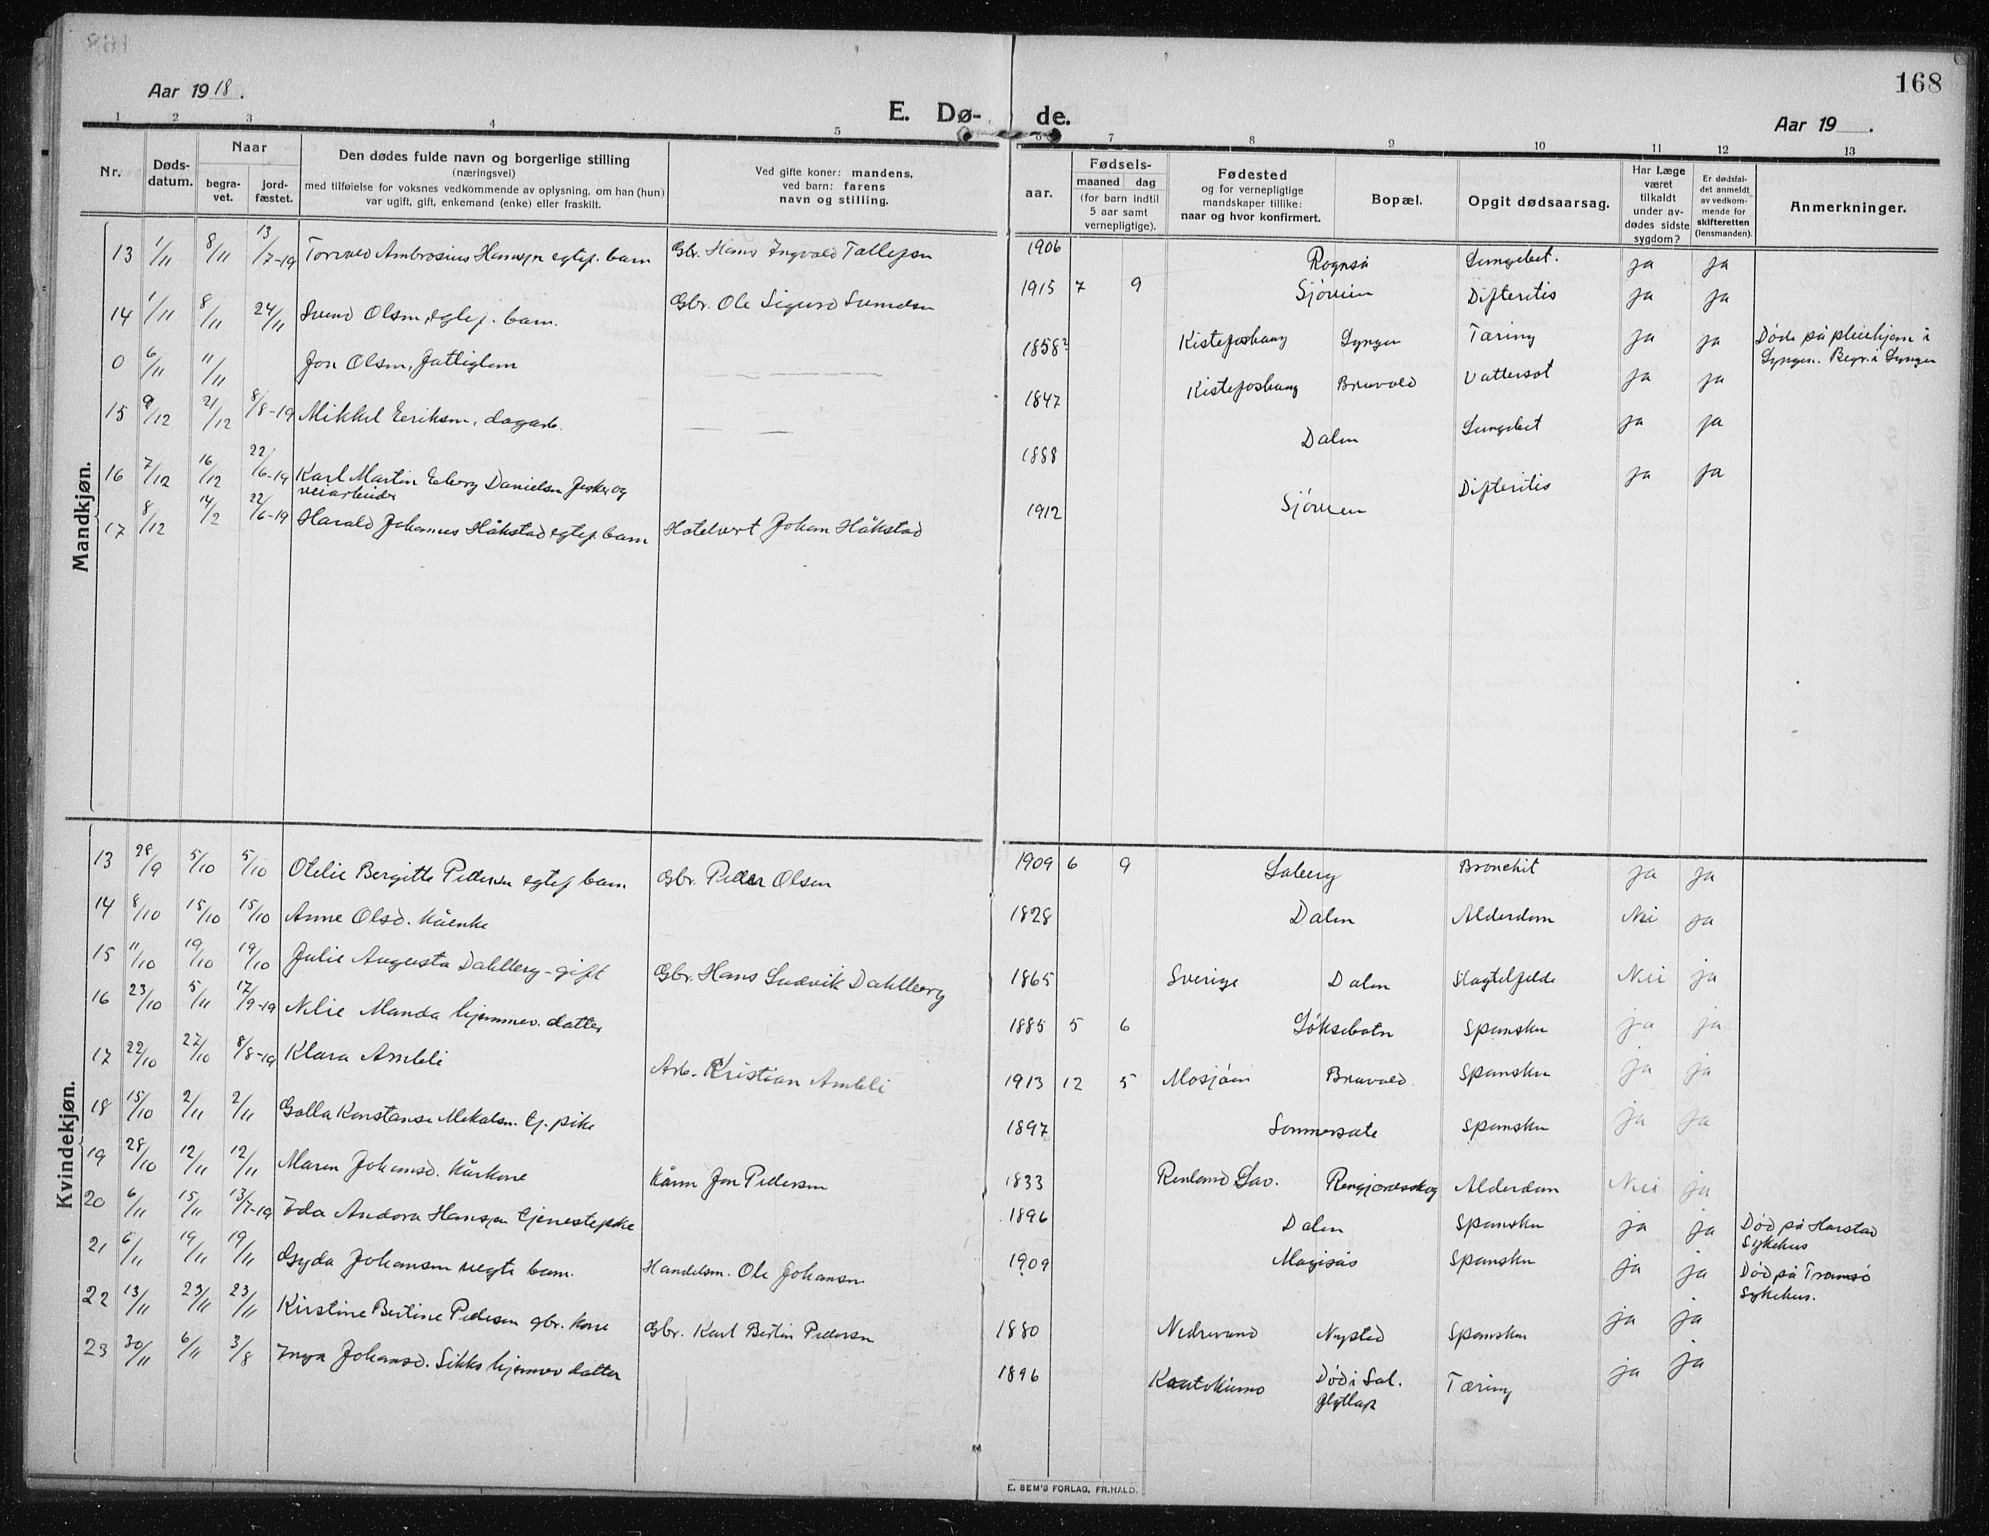 168
Aar 1918.
E. Dø- de.
Aar 19 .
1 2 3 4 5 6 7 8 9 10 11 12 13
Nr.
Døds-
datum.
Naar
begra-
vet.
jord-
fæstet.
Den dødes fulde navn og borgerlige stilling
(næringsvei)
med tilføielse for voksnes vedkommende av oplysning, om han (hun)
var ugift, gift, enkemand (enke) eller fraskilt.
Ved gifte koner: mandens,
ved barn: farens
navn og stilling.
aar.
Fødsels-
maaned dag
(for barn indtil
5 aar samt
vernepligtige).
Fødested
og for vernepligtige
mandskaper tillike:
naar og hvor konfirmert.
Bopæl.
Opgit dødsaarsag.
Har Læge
været
tilkaldt
under av-
dødes sidste
sygdom?
Er dødsfal-
det anmeldt
av vedkom-
mende for
skifteretten
(lensmanden).
Anmerkninger.
Mandkjøn.
13 1/11 8/11 13/7-19 Torvald Ambrosius Hansen egtef. barn Gbr. Hans Ingvald Tollefsen 1906 Rognså Lungebet. ja ja
14 1/11 8/11 24/11 Svend Olsen, egtef. barn. Gbr. Ole Sigurd Svendsen 1915 7 9 Sjøveien Difteritis ja ja
0 6/11 11/11 Jon Olsen, Fattiglem 1858? Kistefoshaug Lyngen Tæring ja ja Døde på pleiehjem i
Lyngen. Begr. i Lyngen
15 9/12 21/12 8/8-19 Mikkel Eeriksen, dagarb. 1847 Kistefoshaug Bruvold Vattersot ja ja
16 7/12 16/12 22/6-19 Karl Martin Eberg Danielsen fisker og
veiarbeider 1888 Dalen Lungebet ja ja
17 8/12 14/2 22/6-19 Harald Johannes Håkstad egtef. barn Hotelvert Johan Håkstad 1912 Sjøveien Difteritis ja ja
Kvindekjøn.
13 28/9 5/10 5/10 Otelie Bergitte Pedersen egtef barn Gbr. Peder Olsen 1909 6 9 Saberg Bronchit ja ja
14 8/10 15/10 15/10 Anne Olsd. kåenke 1828 Dalen Alderdom Nei ja
15 11/10 19/10 19/10 Julie Augusta Dahlberg - gift Gbr. Hans Ludvik Dahlberg 1865 Sverige Dalen Slagtelfelde Nei ja
16 23/10 5/11 17/9-19 Nelie Manda hjemmev. datter 1885 5 6 Løksebotn Spansken ja ja
17 22/10 27/10 8/8-19 Klara Ambli Arb. Kristian Ambli 1913 12 5 Mosjøen Bruvold. Spansken ja ja
18 15/10 2/11 2/11 Golla Konstanse Mikalsen. tj. pike 1897 Sommersæte Spansken ja ja
19 28/10 12/11 12/11 Maren Johansd. kårkone Kårm Jon Pedersen 1833 Renland Lav. Rengjordsskog Alderdom Nei ja
20 6/11 15/11 13/7-19 Ida Andora Hansen tjenestepike 1896 Dalen Spansken ja ja Død på Harstad
Sykehus
21 6/11 19/11 19/11 Gyda Johansen uegte barn. Handelsm. Ole Johansen 1909 Spansken ja ja Død på Tromsø
Sykehus.
22 13/11 23/11 23/11 Kirstine Bertine Pedersen gbr. kone Gbr. Karl Bertin Pedersen 1880 Nedrevand Nysted Spansken ja ja
23 30/11 6/11 3/8 Inga Johansd. Sikko hjemmev datter 1896 Kautokeino Død i Sal.
Tæring ja ja
E. SEM'S FORLAG, FR.HALD.